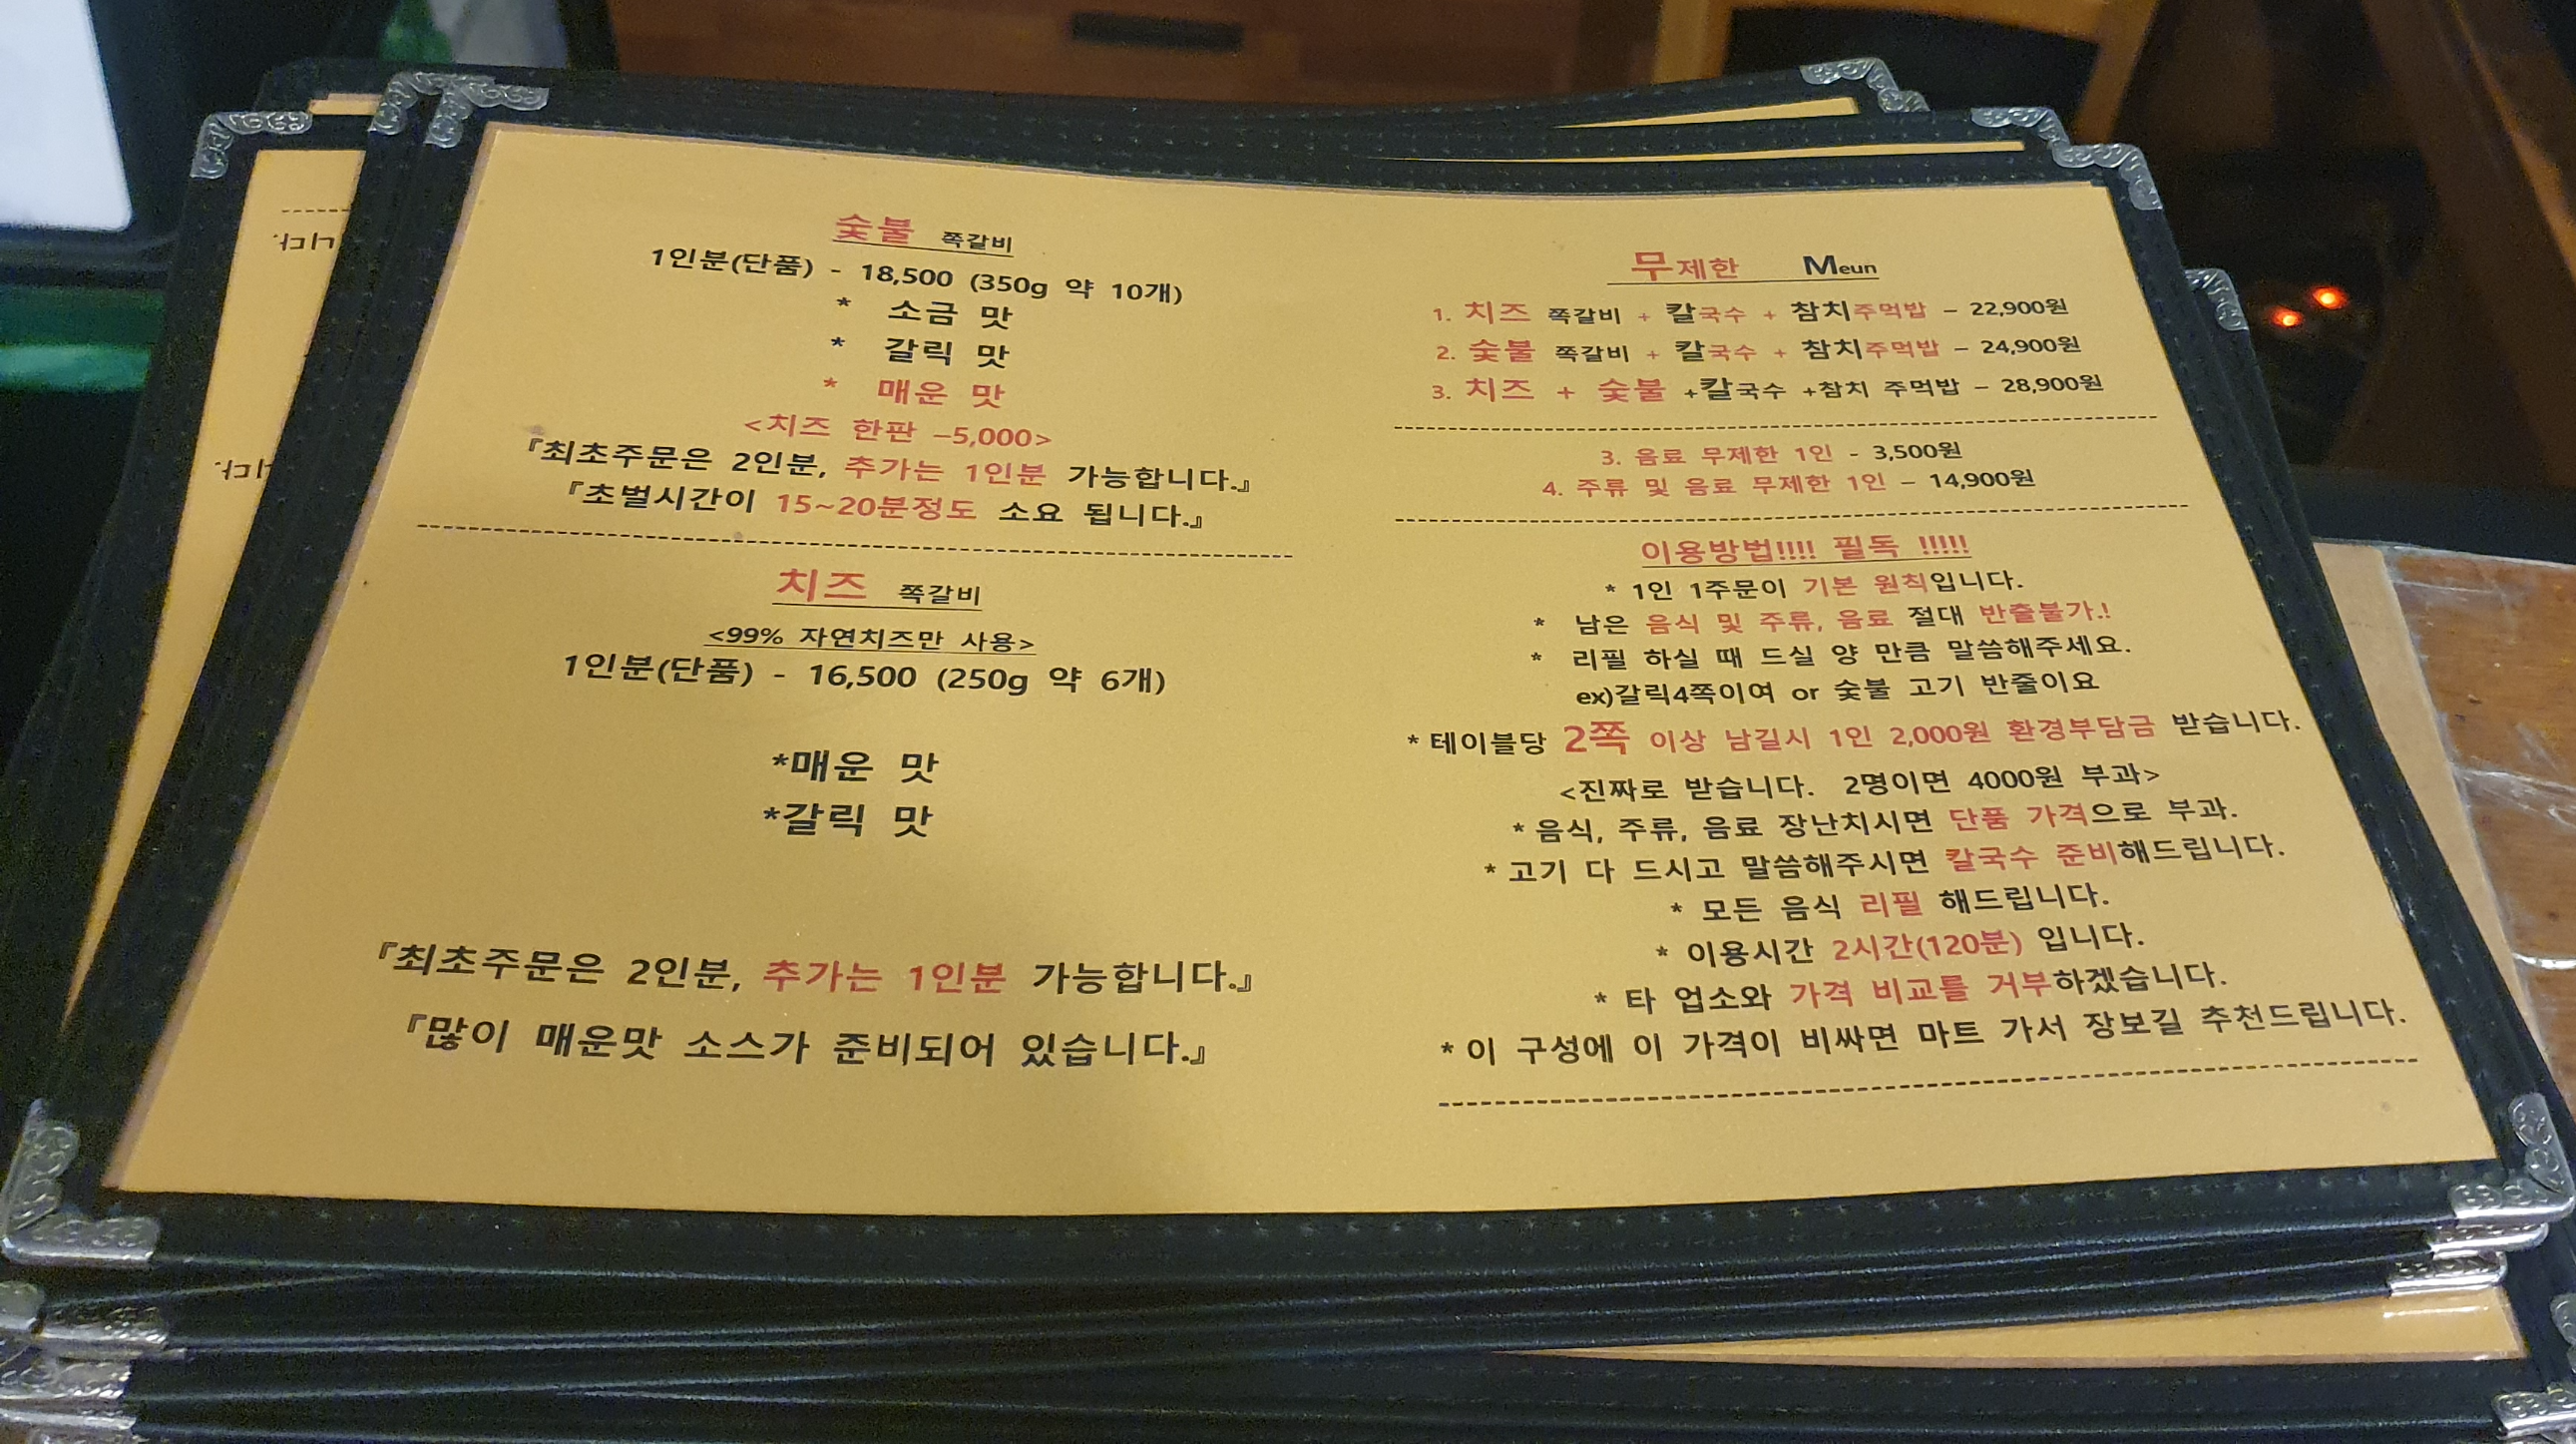 숯불 쪽갈비
1인분(단품) - 18,500 (350g 약 10개)
* 소금 맛
* 갈릭 맛
* 매운 맛
<치즈 한판 –5,000>
『최초주문은 2인분, 추가는 1인분 가능합니다.』
『초벌시간이 15~20분정도 소요 됩니다.』
치즈 쪽갈비
<99% 자연치즈만 사용>
1인분(단품) - 16,500 (250g 약 6개)
*매운 맛
*갈릭 맛
『최초주문은 2인분, 추가는 1인분 가능합니다.』
『많이 매운맛 소스가 준비되어 있습니다.』
무제한 Meun
1. 치즈 쪽갈비 + 칼국수 + 참치주먹밥 – 22,900원
2. 숯불 쪽갈비 + 칼국수 + 참치주먹밥 – 24,900원
3. 치즈 + 숯불 +칼국수 +참치 주먹밥 – 28,900원
3. 음료 무제한 1인 - 3,500원
4. 주류 및 음료 무제한 1인 – 14,900원
이용방법!!!! 필독 !!!!!
* 1인 1주문이 기본 원칙입니다.
* 남은 음식 및 주류, 음료 절대 반출불가.!
* 리필 하실 때 드실 양 만큼 말씀해주세요.
ex)갈릭4쪽이여 or 숯불 고기 반줄이요
* 테이블당 2쪽 이상 남길시 1인 2,000원 환경부담금 받습니다.
<진짜로 받습니다. 2명이면 4000원 부과>
* 음식, 주류, 음료 장난치시면 단품 가격으로 부과.
* 고기 다 드시고 말씀해주시면 칼국수 준비해드립니다.
* 모든 음식 리필 해드립니다.
* 이용시간 2시간(120분) 입니다.
* 타 업소와 가격 비교를 거부하겠습니다.
* 이 구성에 이 가격이 비싸면 마트 가서 장보길 추천드립니다.